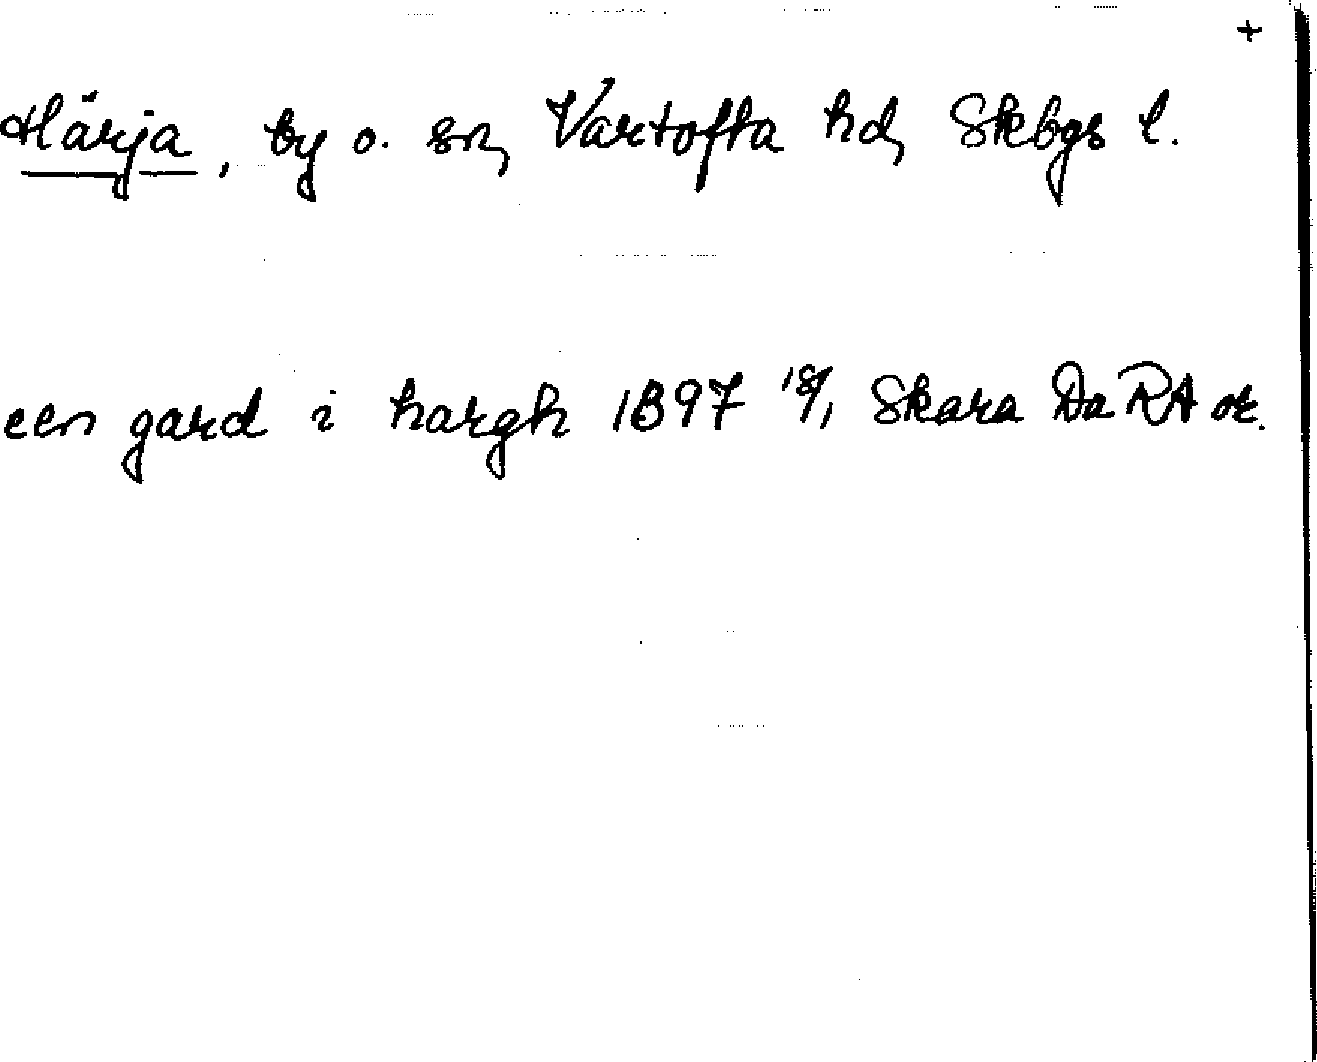 +
Härja, by o. sn, Vartofta hd, Skbgs l.
een gard i hargh 1397 18/1 Skara Da RA or.